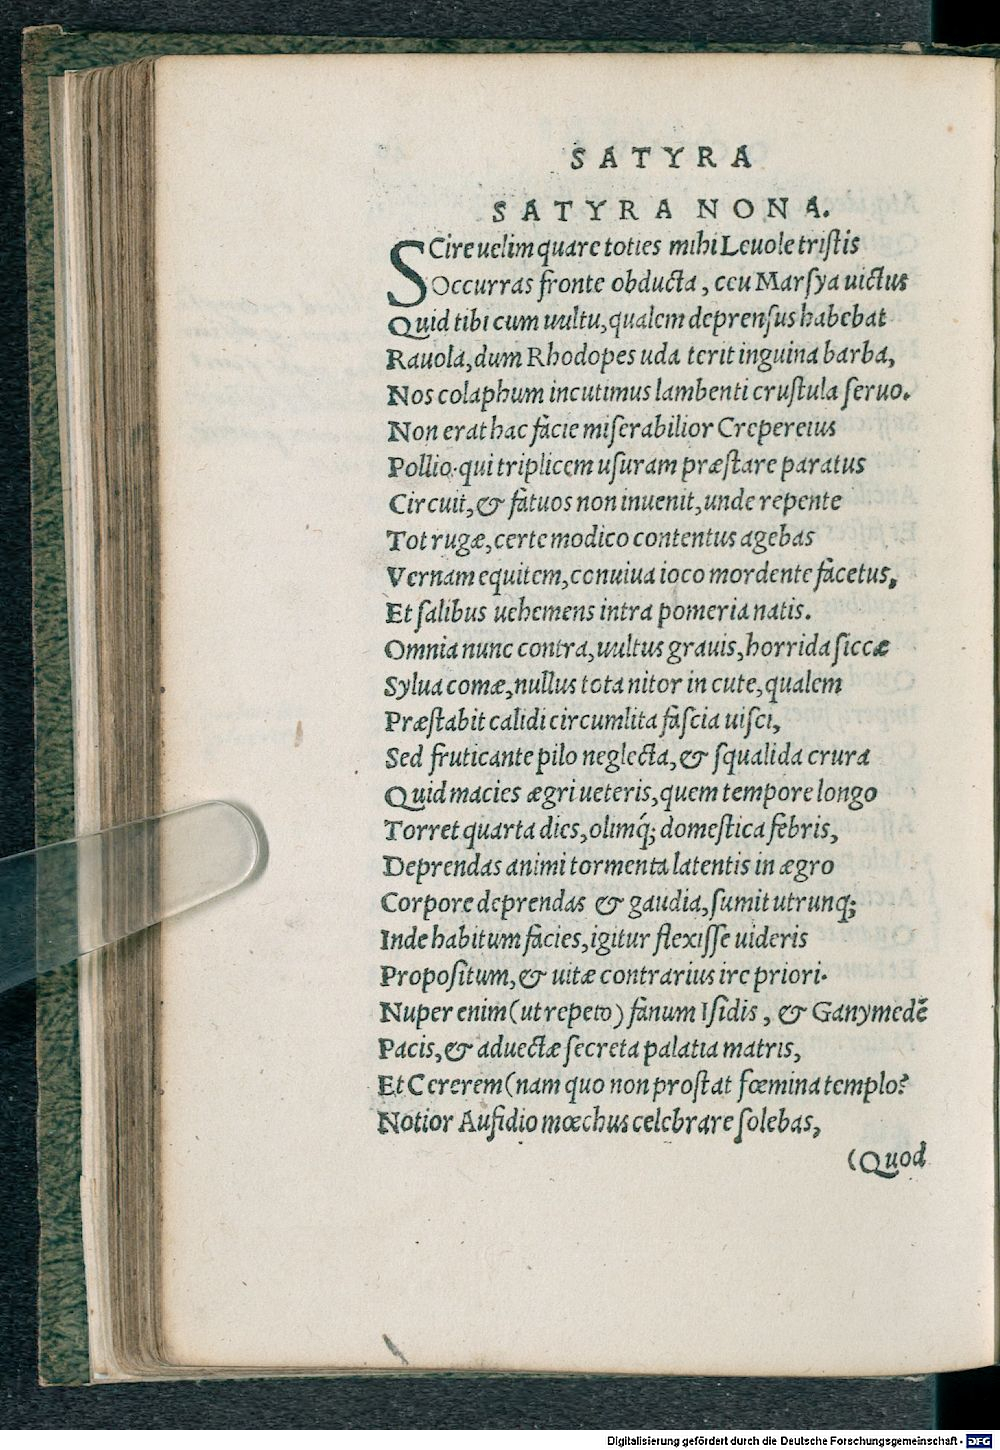 SATYRA
SATYRA NONA.
SCire uelim quare toties mihi Leuole tristis
Occurras fronte obducta, ceu Marsya uictus
Quid tibi cum uultu, qualem deprensus habebat
Rauola, dum Rhodopes uda terit inguina barba,
Nos colaphum incutimus lambenti crustula seruo.
Non erat hac facie miserabilior Crepereius
Pollio. qui triplicem usuram præstare paratus
Circuit, & fatuos non inuenit, unde repente
Tot rugæ, certe modico contentus agebas
Vernam equitem, conuiua ioco mordente facetus,
Et salibus uehemens intra pomeria natis.
Omnia nunc contra, uultus grauis, horrida siccæ
Sylua comæ, nullus tota nitor in cute, qualem
Præstabit calidi circumlita fascia uisci,
Sed fruticante pilo neglecta, & squalida crura
Quid macies ægri ueteris, quem tempore longo
Torret quarta dies, olimq́; domestica febris,
Deprendas animi tormenta latentis in ægro
Corpore deprendas & gaudia, sumit utrunq;
Inde habitum facies, igitur flexisse uideris
Propositum, & uitæ contrarius ire priori.
Nuper enim (ut repeto) fanum Isidis, & Ganymedẽ
Pacis, & aduectæ secreta palatia matris,
Et Cererem (nam quo non prostat fœmina templo?
Notior Aufidio mœchus celebrare solebas,
(Quod
Digitalisierung gefördert durch die Deutsche Forschungsgemeinschaft - DFG